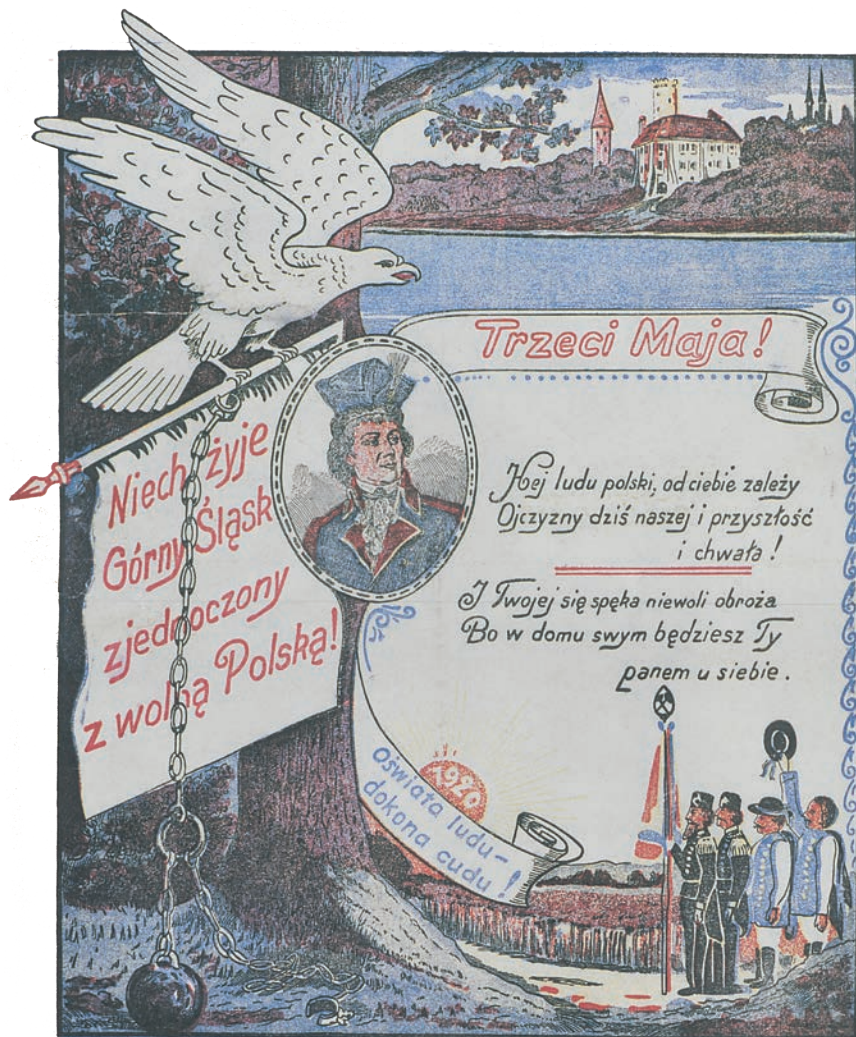 Trzeci Maja!
Niech żyje
Górny Śląsk
zjednoczony
z wolną Polską!
Hej ludu polski, od ciebie zależy
Ojczyzny dziś naszej i przyszłość
i chwała!
I Twojej się spęka niewoli obroża
Bo w domu swym będziesz Ty
panem u siebie.
1920
oświata ludu-
dokona cudu!